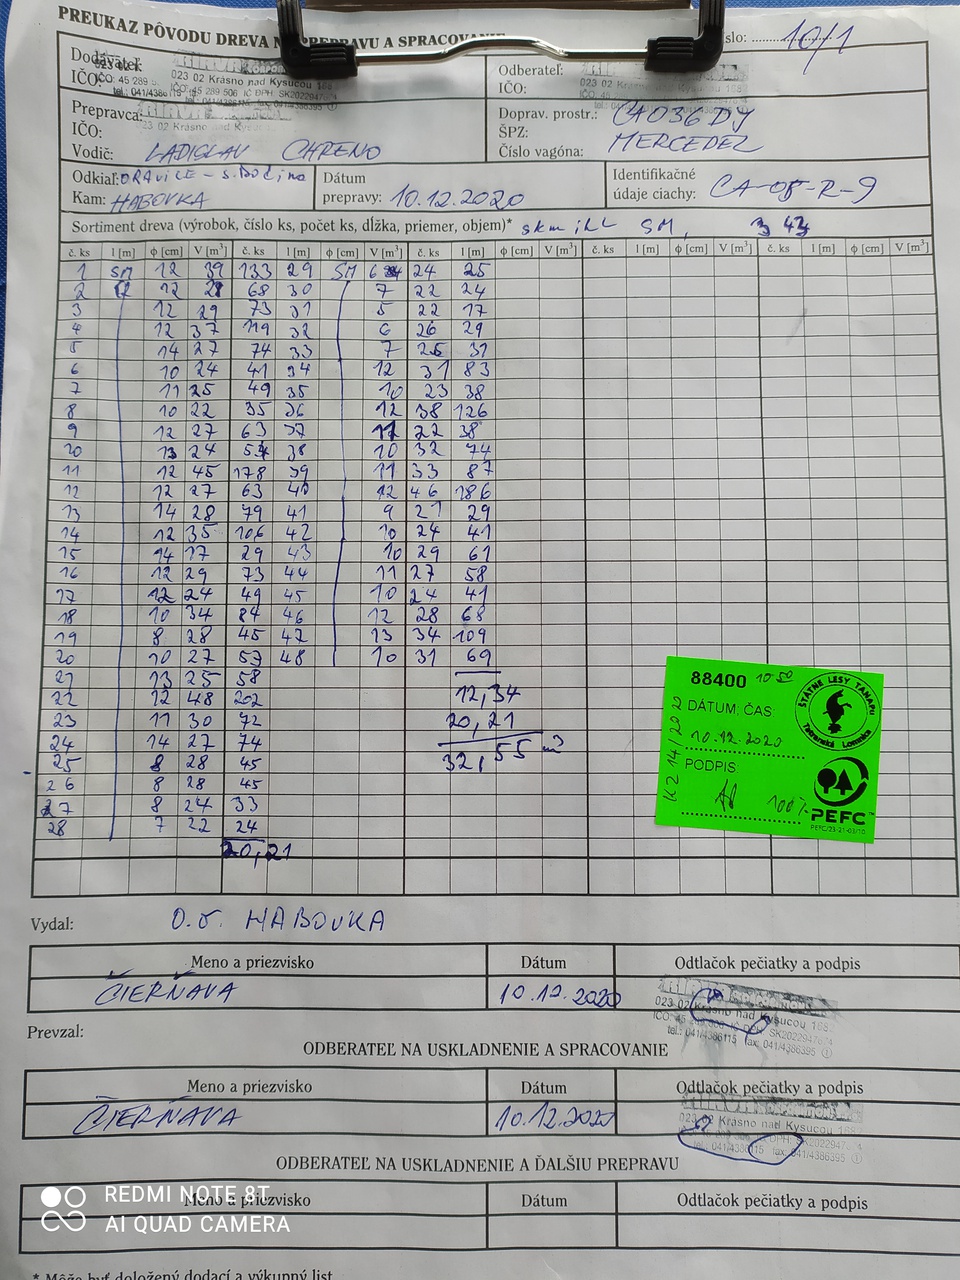 PREUKAZ PÔVODU DREVA NA PREPRAVU A SPRACOVANIE
číslo: 10/1
Dodávateľ
IČO:
023 02 Krásno nad Kysucou 168
Odberateľ:
IČO:
Prepravca:
IČO:
Vodič: LADISLAV CHRENO
Doprav. prostr.: CA036DY
ŠPZ:
Číslo vagóna: MERCEDEZ
Odkiaľ: ORAVICE - S. DOLINA
Kam: HABOVKA
Dátum
prepravy: 10.12.2020
Identifikačné
údaje ciachy: CA-08-R-9
Sortiment dreva (výrobok, číslo ks, počet ks, dĺžka, priemer, objem)* SM, 43
č. ks l [m] ϕ [cm] V [m³] č. ks l [m] ϕ [cm] V [m³] č. ks l [m] ϕ [cm] V [m³] č. ks l [m] ϕ [cm] V [m³] č. ks l [m] ϕ [cm] V [m³]
1 SM 12 39 133 29 SM 6 24 25
2 12 28 68 30 7 22 24
3 12 29 73 31 5 22 17
4 12 37 119 32 6 26 29
5 14 27 74 33 7 25 31
6 10 24 41 34 12 31 83
7 11 25 49 35 10 23 38
8 10 22 35 36 12 38 126
9 12 27 63 37 11 22 38
10 13 24 54 38 10 32 74
11 12 45 178 39 11 33 87
12 12 27 63 40 12 46 186
13 14 28 79 41 9 21 29
14 12 35 106 42 10 24 41
15 14 17 29 43 10 29 61
16 12 29 73 44 11 27 58
17 12 24 49 45 10 24 41
18 10 34 84 46 12 28 68
19 8 28 45 47 13 34 109
20 10 27 53 48 10 31 69
21 13 25 58
22 12 48 202 12,34
23 11 30 72 20,21
24 14 27 74 32,55 m³
25 8 28 45
26 8 28 45
27 8 24 33
28 7 22 24
20,21
88400 10 50
ŠTÁTNE LESY TANAPU
Tatranská Lomnica
DÁTUM; ČAS
10.12.2020
PODPIS:
100%
PEFC
PEFC/23-21-03/10
Vydal: O.J. HABOVKA
Meno a priezvisko Dátum Odtlačok pečiatky a podpis
ČIERŇAVA 10.12.2020
023 02 Krásno nad Kysucou 168
tel.: 041/4386115 fax: 041/4386395
Prevzal:
ODBERATEĽ NA USKLADNENIE A SPRACOVANIE
Meno a priezvisko Dátum Odtlačok pečiatky a podpis
ČIERŇAVA 10.12.2020
023 02 Krásno nad Kysucou 168
tel.: 041/4386115 fax: 041/4386395
ODBERATEĽ NA USKLADNENIE A ĎALŠIU PREPRAVU
Meno a priezvisko Dátum Odtlačok pečiatky a podpis
REDMI NOTE 8T
AI QUAD CAMERA
* Môže byť doložený dodací a výkupný list